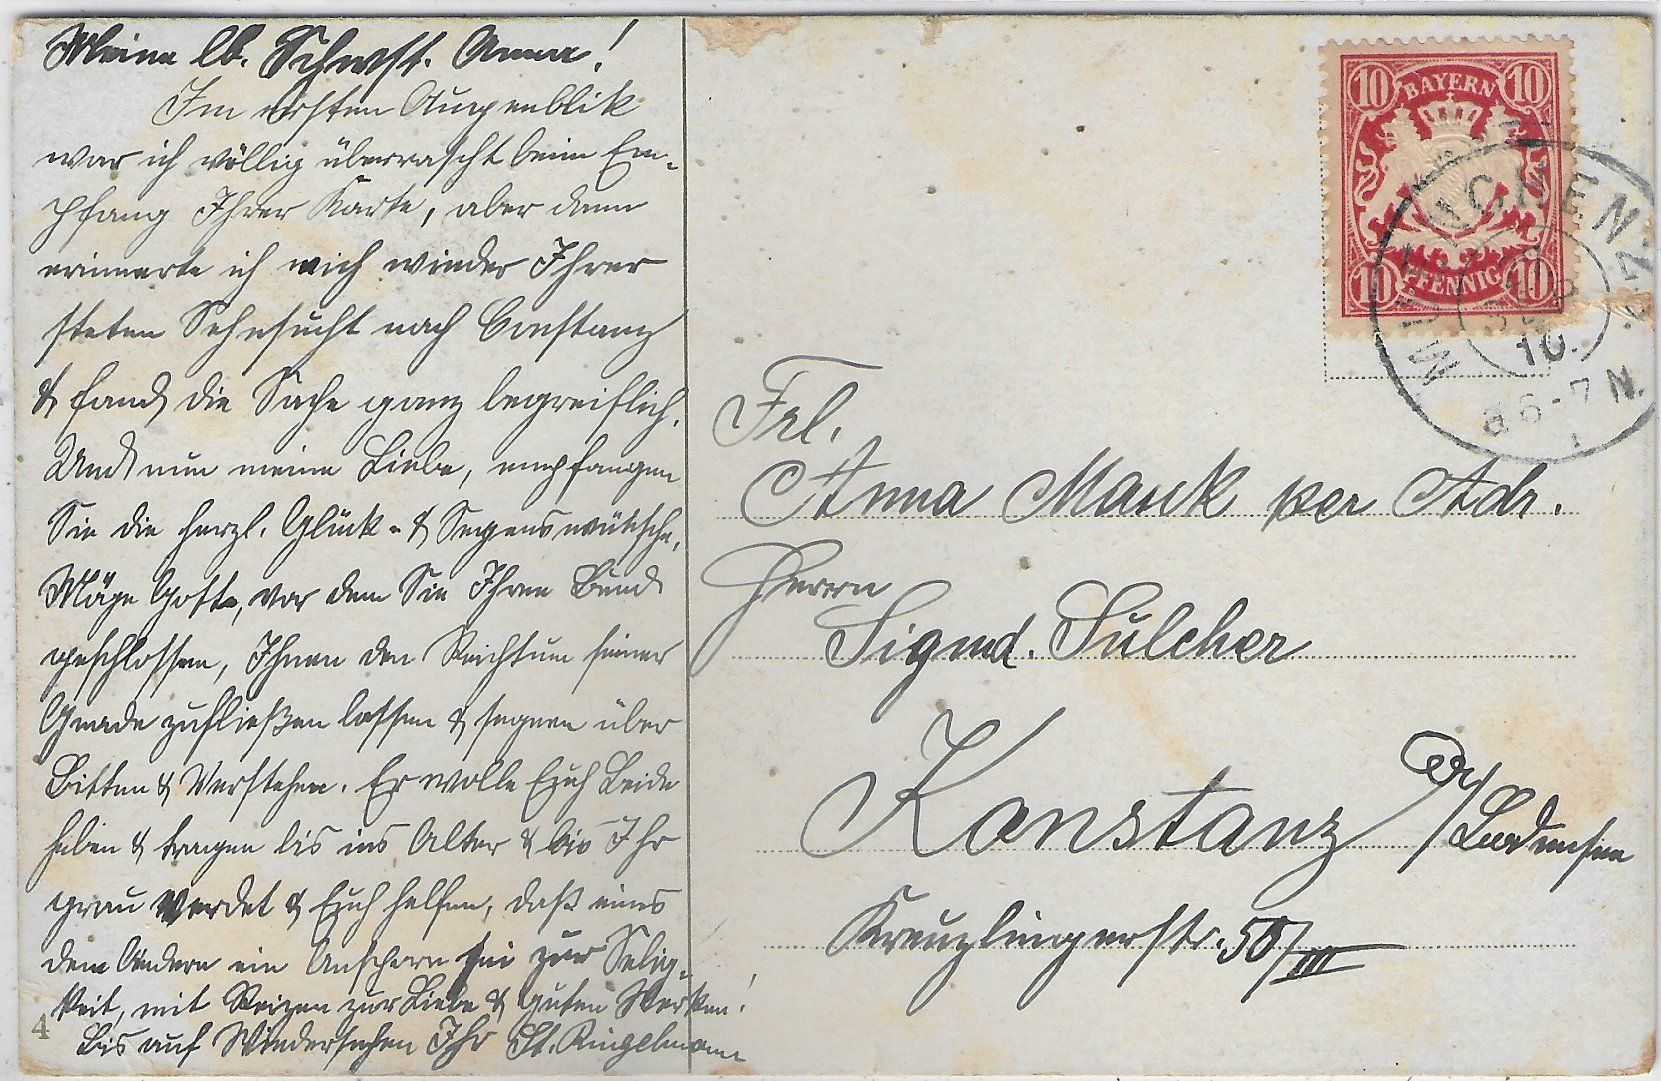 Meine lb. Schwst. Anna!
Im ersten Augenblik
war ich völlig überrascht beim Em-
pfang Ihrer Karte, aber dann
erinnerte ich mich wieder Ihrer
steten Sehnsucht nach Constanz
& fand die Sache ganz begreiflich.
Und nun meine Liebe, empfangen
Sie die herzl. Glück- & Segenswünsche,
Möge Gott, vor dem Sie Ihren Bund
geschlossen, Ihnen den Reichtum seiner
Gnade zufließen lassen & segnen über
Bitten & Verstehen. Er wolle Euch Beide
heben & tragen bis ins Alter & bis Ihr
grau werdet & Euch helfen, daß eines
dem Andern ein Ansporn sei zur Selig-
keit, mit Reizen zur Liebe & guten Werken!
Bis auf Wiedersehen Ihr St. Ringelmann
4
BAYERN
10 10
10 PFENNIG 10
SEP
10.
6-7 N.
Frl.
Anna Mauk per Adr.
Herrn
Sigmd. Sulcher
Konstanz a/Bodensee
Kreuzlingerstr. 50/III